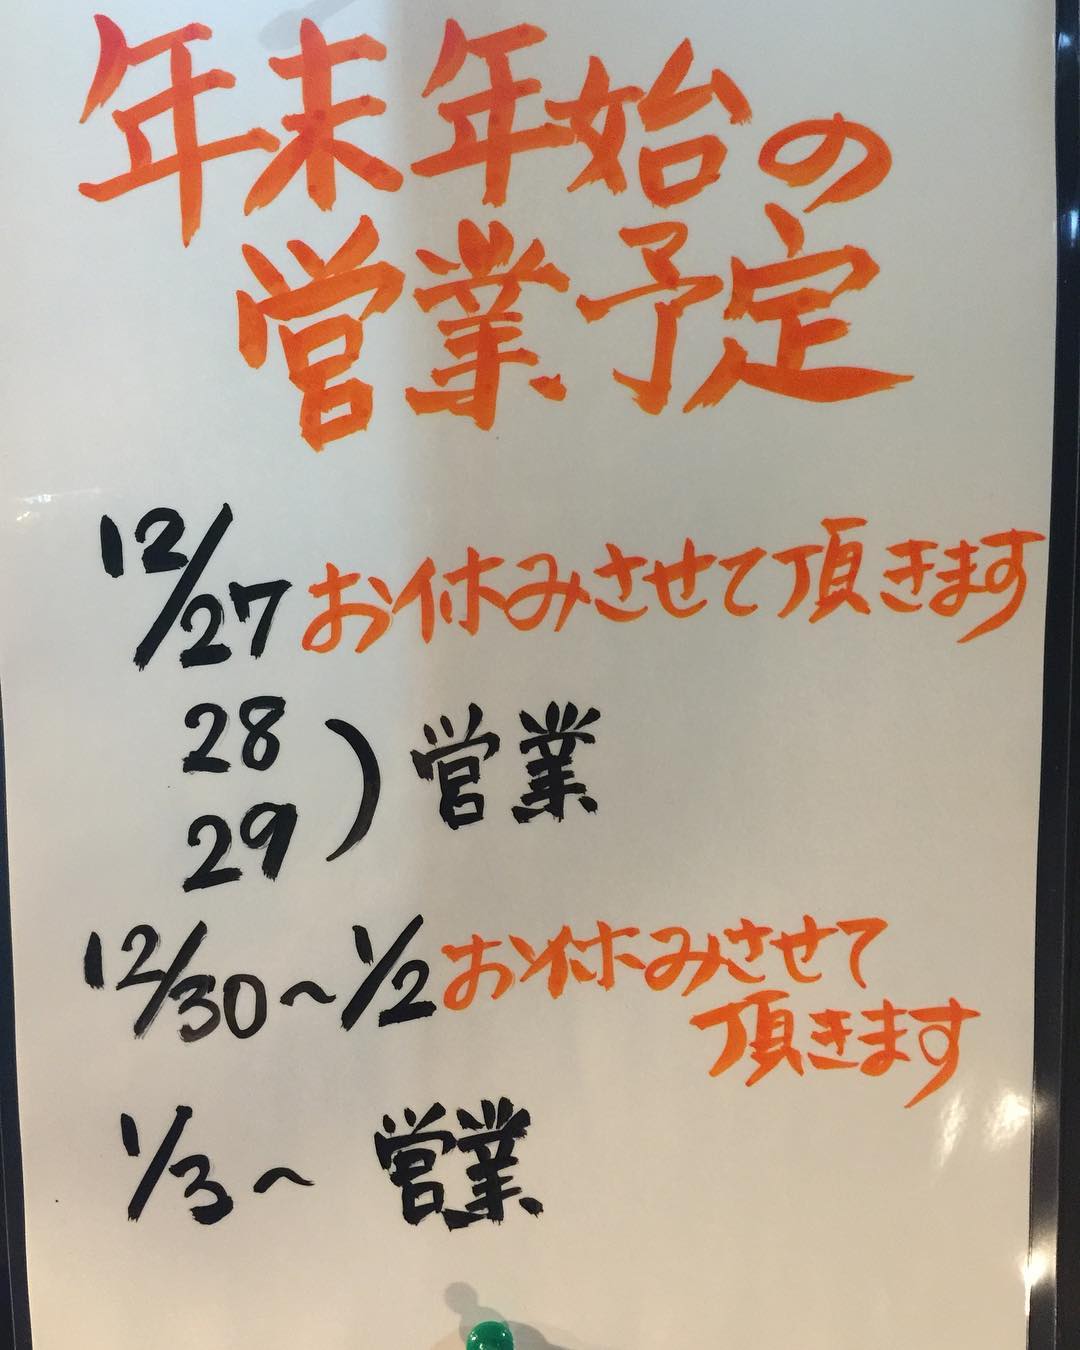 年末年始の
営業予定
12/27 お休みさせて頂きます
28
29 ) 営業
12/30〜1/2 お休みさせて
頂きます
1/3〜 営業